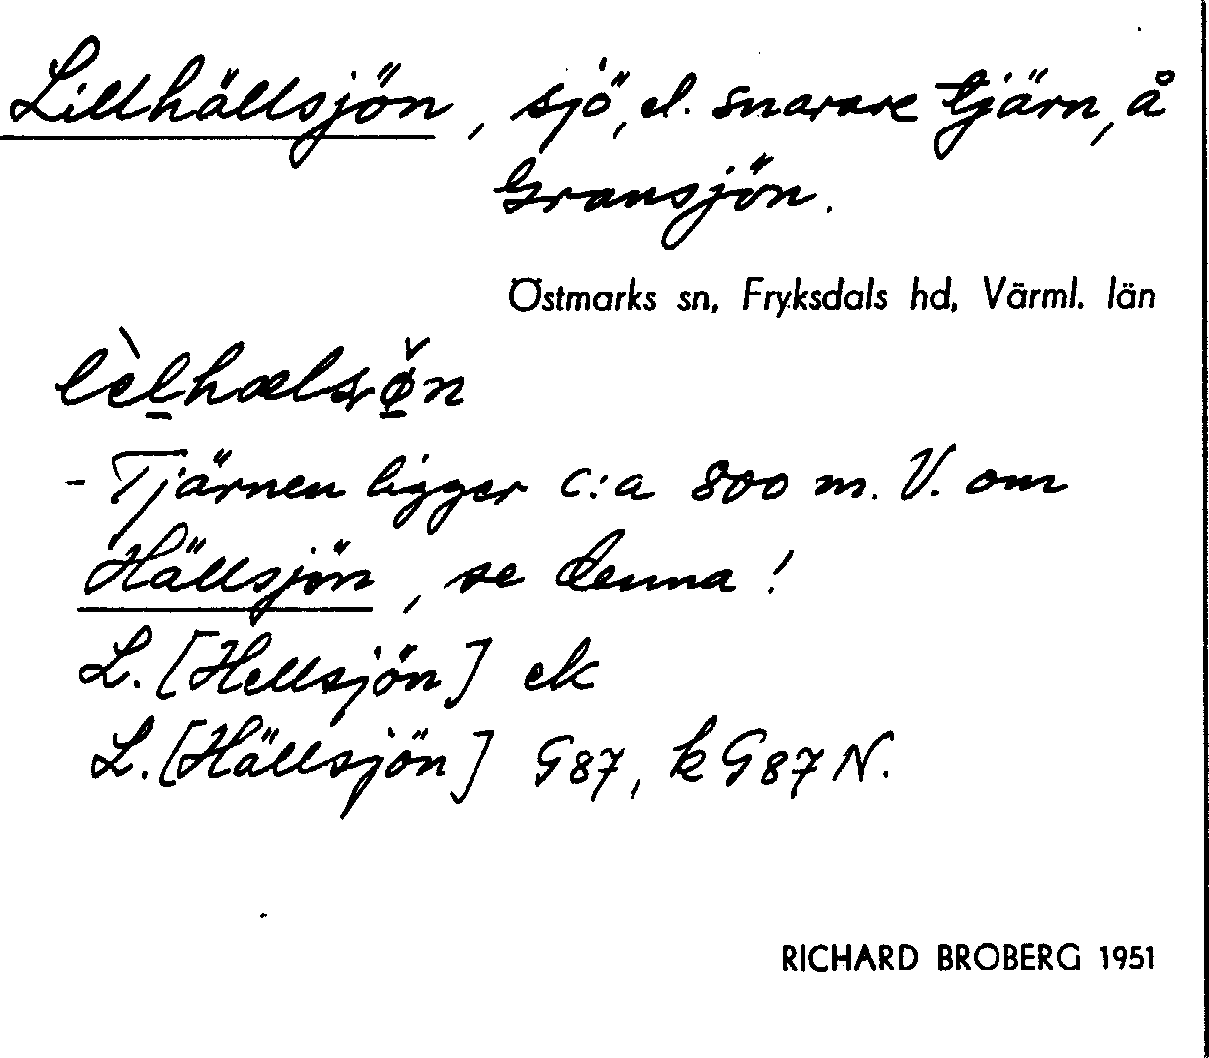 Lillhällsjön, sjö, el. snarare tjärn, å
Gransjön.
Östmarks sn, Fryksdals hd, Värml. län
- Tjärnen ligger c:a 800 m. V. om
Hällsjön, se denna!
L. [Hellsjön] ek
L. [Hällsjön] G87, k G87 N.
RICHARD BROBERG 1951